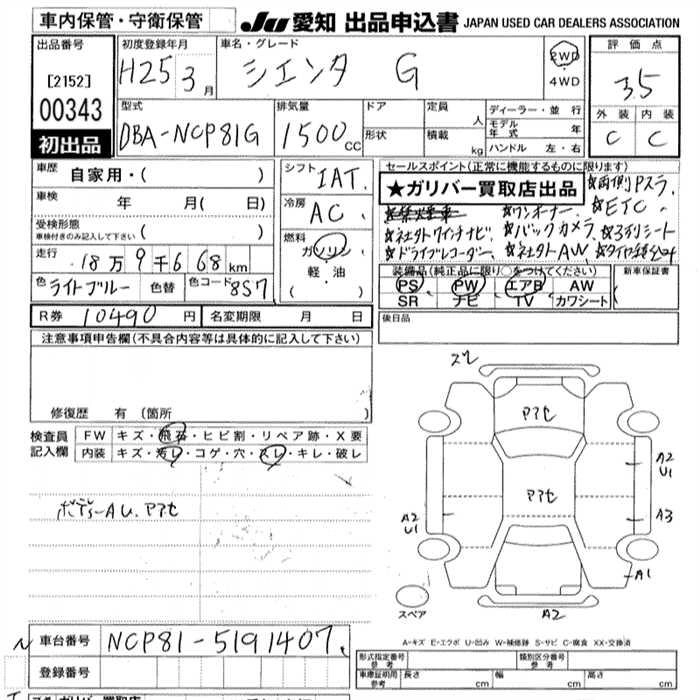 車内保管・守衛保管
JU 愛知 出品申込書 JAPAN USED CAR DEALERS ASSOCIATION
出品番号 初度登録年月 車名・グレード 評価点
[2152] H25 3月 シエンタ G 2WD 3.5
4WD
00343 型式 排気量 ドア 定員 人 ディーラー・並行 外装 内装
モデル年式 年
初出品 DBA-NCP81G 1500cc 形状 積載 kg ハンドル 左・右 C C
車歴 自家用・( ) シフト IAT. セールスポイント(正常に機能するものに限ります)
★ガリバー買取店出品 ★両側Pスラ
車検 年 月( 日) 冷房 AC ★ワンオーナー ★ETC
受検形態
車検付きのみ記入して下さい ( ) 燃料 ★社外ワインチナビ ★バックカメラ ★3列シート
走行 18万9千668km ガソリン ★ドライブレコーダー ★社外AW
軽・油
( )
色 ライトブルー 色替 色コード 8S7 装備品(純正品に限り○をつけてください) 新車保証書
PS PW エアB AW
SR ナビ TV カワシート
R券 10490円 名変期限 月 日 後日品
注意事項申告欄(不具合内容等は具体的に記入して下さい)
修復歴 有 (箇所
検査員記入欄 FW キズ・飛石・ヒビ割・リペア跡・X要
内装 キズ・汚レ・コゲ・穴・スレ・キレ・破レ
ボデーAU.アアセ
スペア
アアセ
アアセ
A2
U1
A3
A2
U1
A1
A2
A-キズ E-エクボ U-凹み W-補修跡 S-サビ C-腐食 XX-交換済
車台番号 NCP81-5191407
登録番号
形式指定番号 参考 類別区分番号 参考
車庫証明用 参考 長さ cm 幅 cm 高さ cm